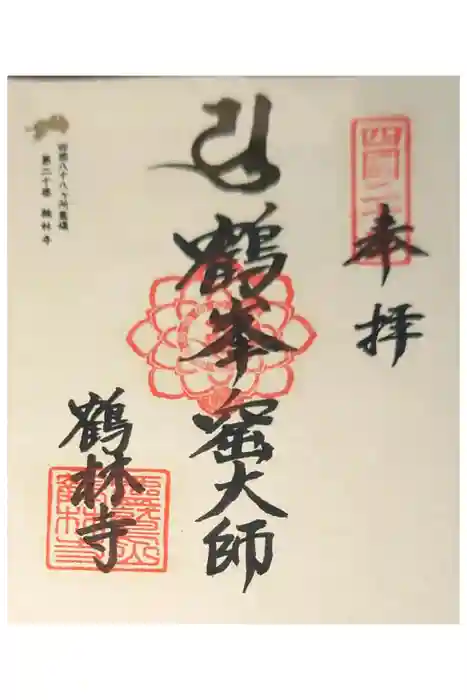 四国二十
奉拝
鶴峯窟大師
鶴林寺
霊鷲山
鶴林寺
四国八十八ヶ所霊場
第二十番 鶴林寺